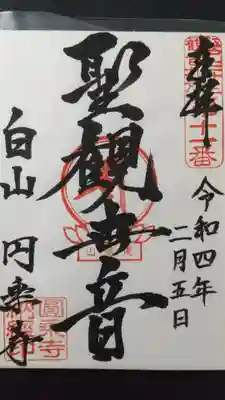 奉拝
令和四年
二月五日
聖観世音
白山 円乗寺
圓乗寺